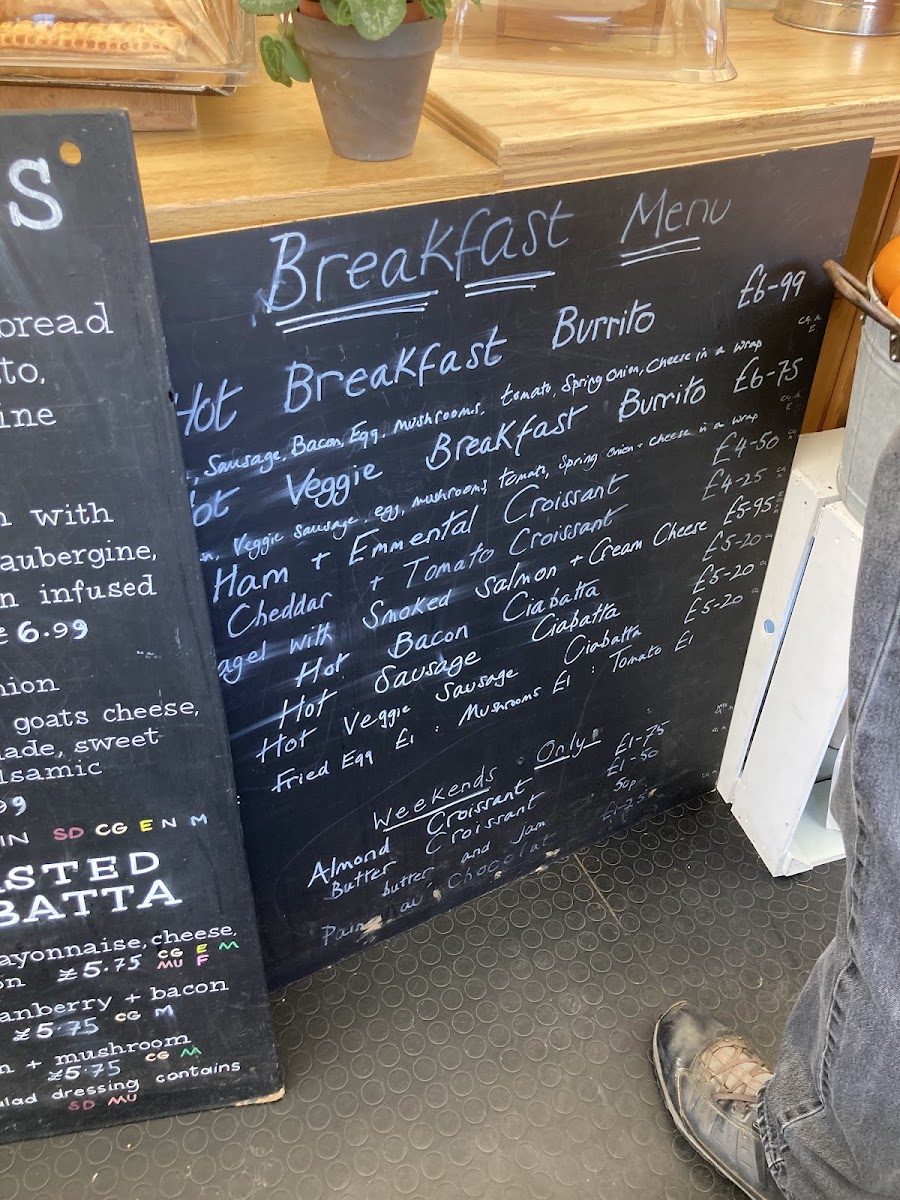 S
bread
sto,
ine
n with
aubergine,
n infused
£6.99
nion
goats cheese,
lade, sweet
lsamic
99
IN SD CG E N M
ASTED
BATTA
ayonnaise, cheese,
on £5.75 CG E M
MU F
anberry + bacon
£5.75 CG M
n + mushroom
£5.75 CG M
alad dressing contains
SD MU
Breakfast Menu
Hot Breakfast Burrito £6-99
, Sausage, Bacon, Egg, Mushrooms, tomato, Spring Onion, Cheese in a wrap
ot Veggie Breakfast Burrito £6-75
n, Veggie sausage, egg, mushrooms, tomato, Spring Onion + cheese in a wrap
Ham + Emmental Croissant £4-50
Cheddar + Tomato Croissant £4-25
agel with Smoked Salmon + Cream Cheese £5-95
Hot Bacon Ciabatta £5-20
Hot Sausage Ciabatta £5-20
Hot Veggie Sausage Ciabatta £5-20
Fried Egg £1 : Mushrooms £1 : Tomato £1
Weekends Only!
Almond Croissant £1-75
Butter Croissant £1-50
butter and jam 50p
Pain au chocolat £1-75